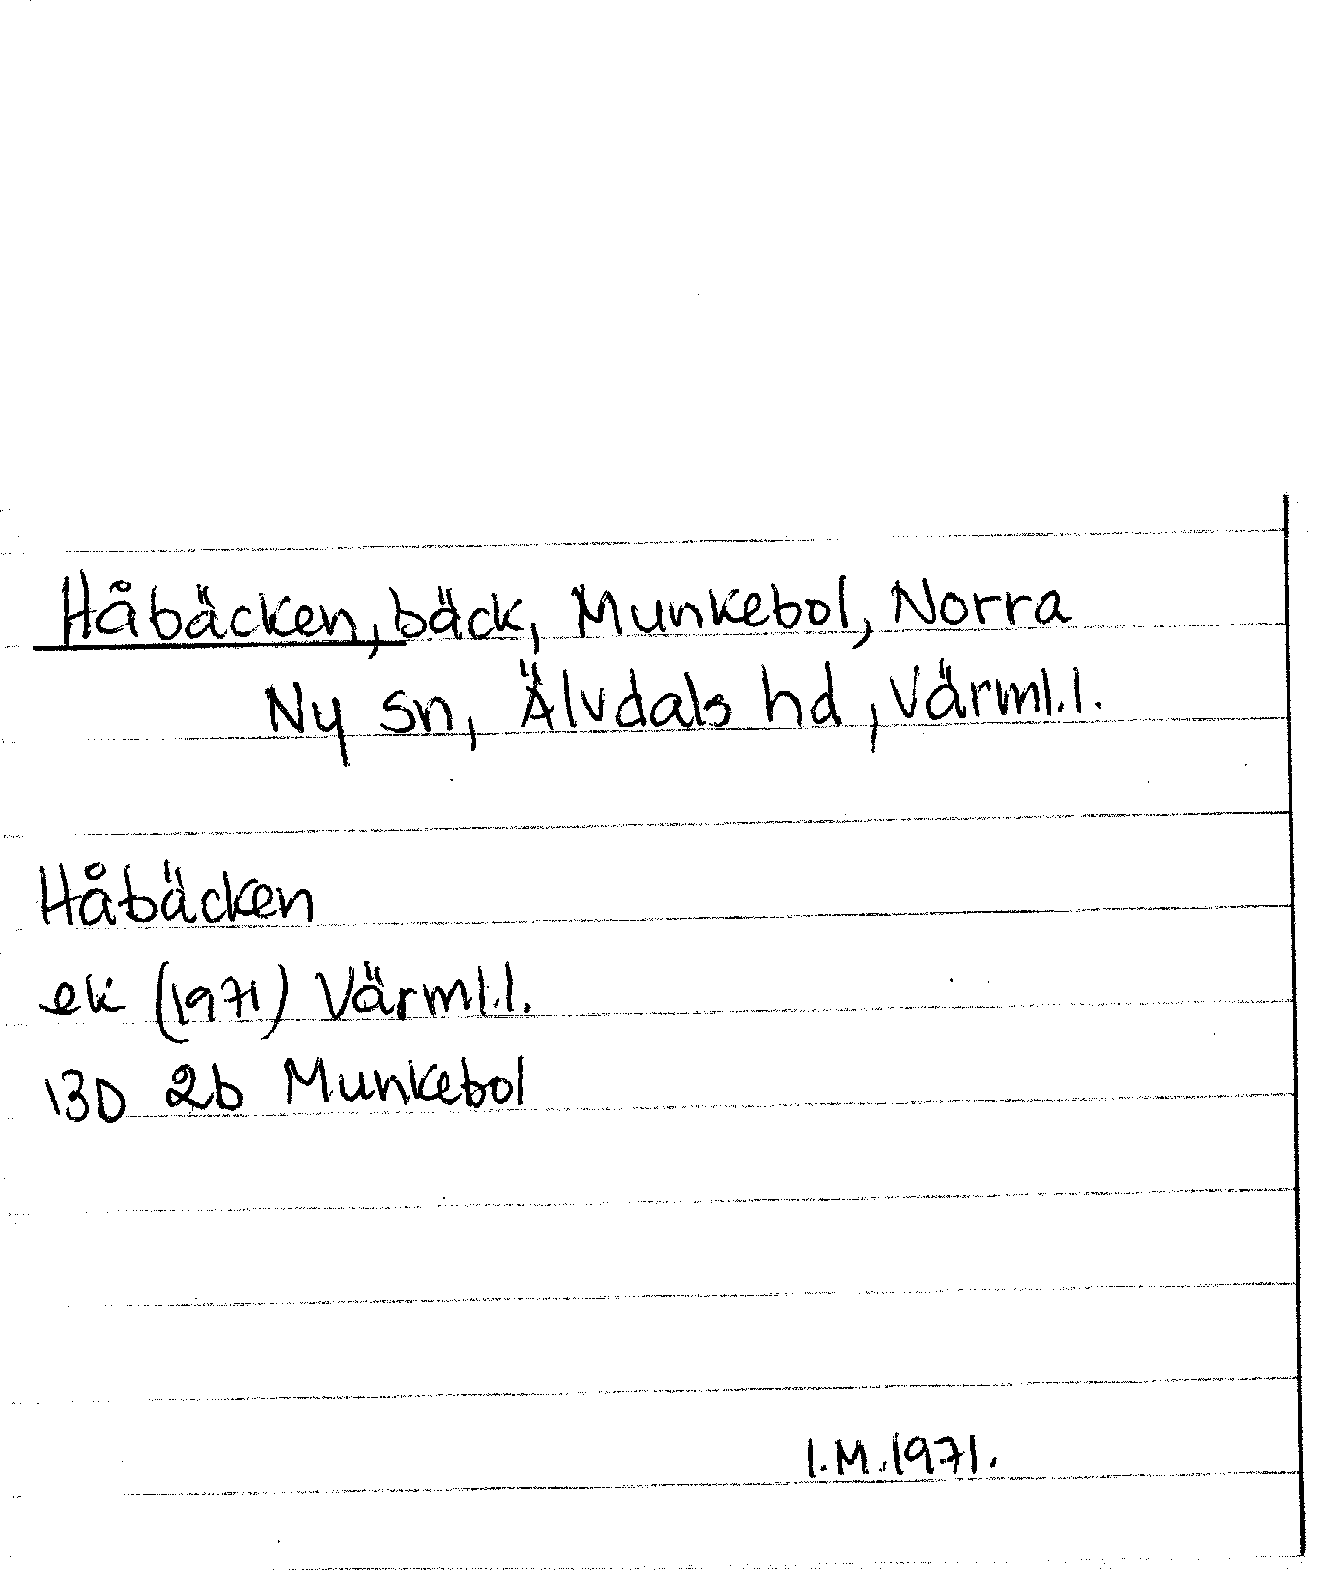 Håbäcken, bäck, Munkebol, Norra
Ny sn, Älvdals hd, Värml.l.
Håbäcken
ek (1971) Värml.l.
13D 2b Munkebol
I.M.1971.